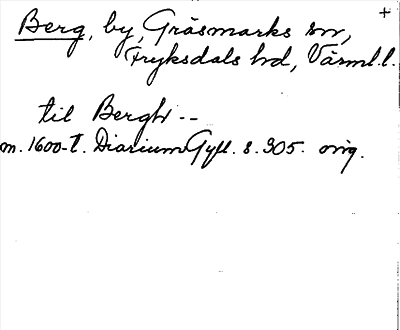 +
Berg, by, Gräsmarks sn,
Fryksdals hd, Värml. l.
til Bergh --
m. 1600-t. Diarium Gyll. s. 305. orig.